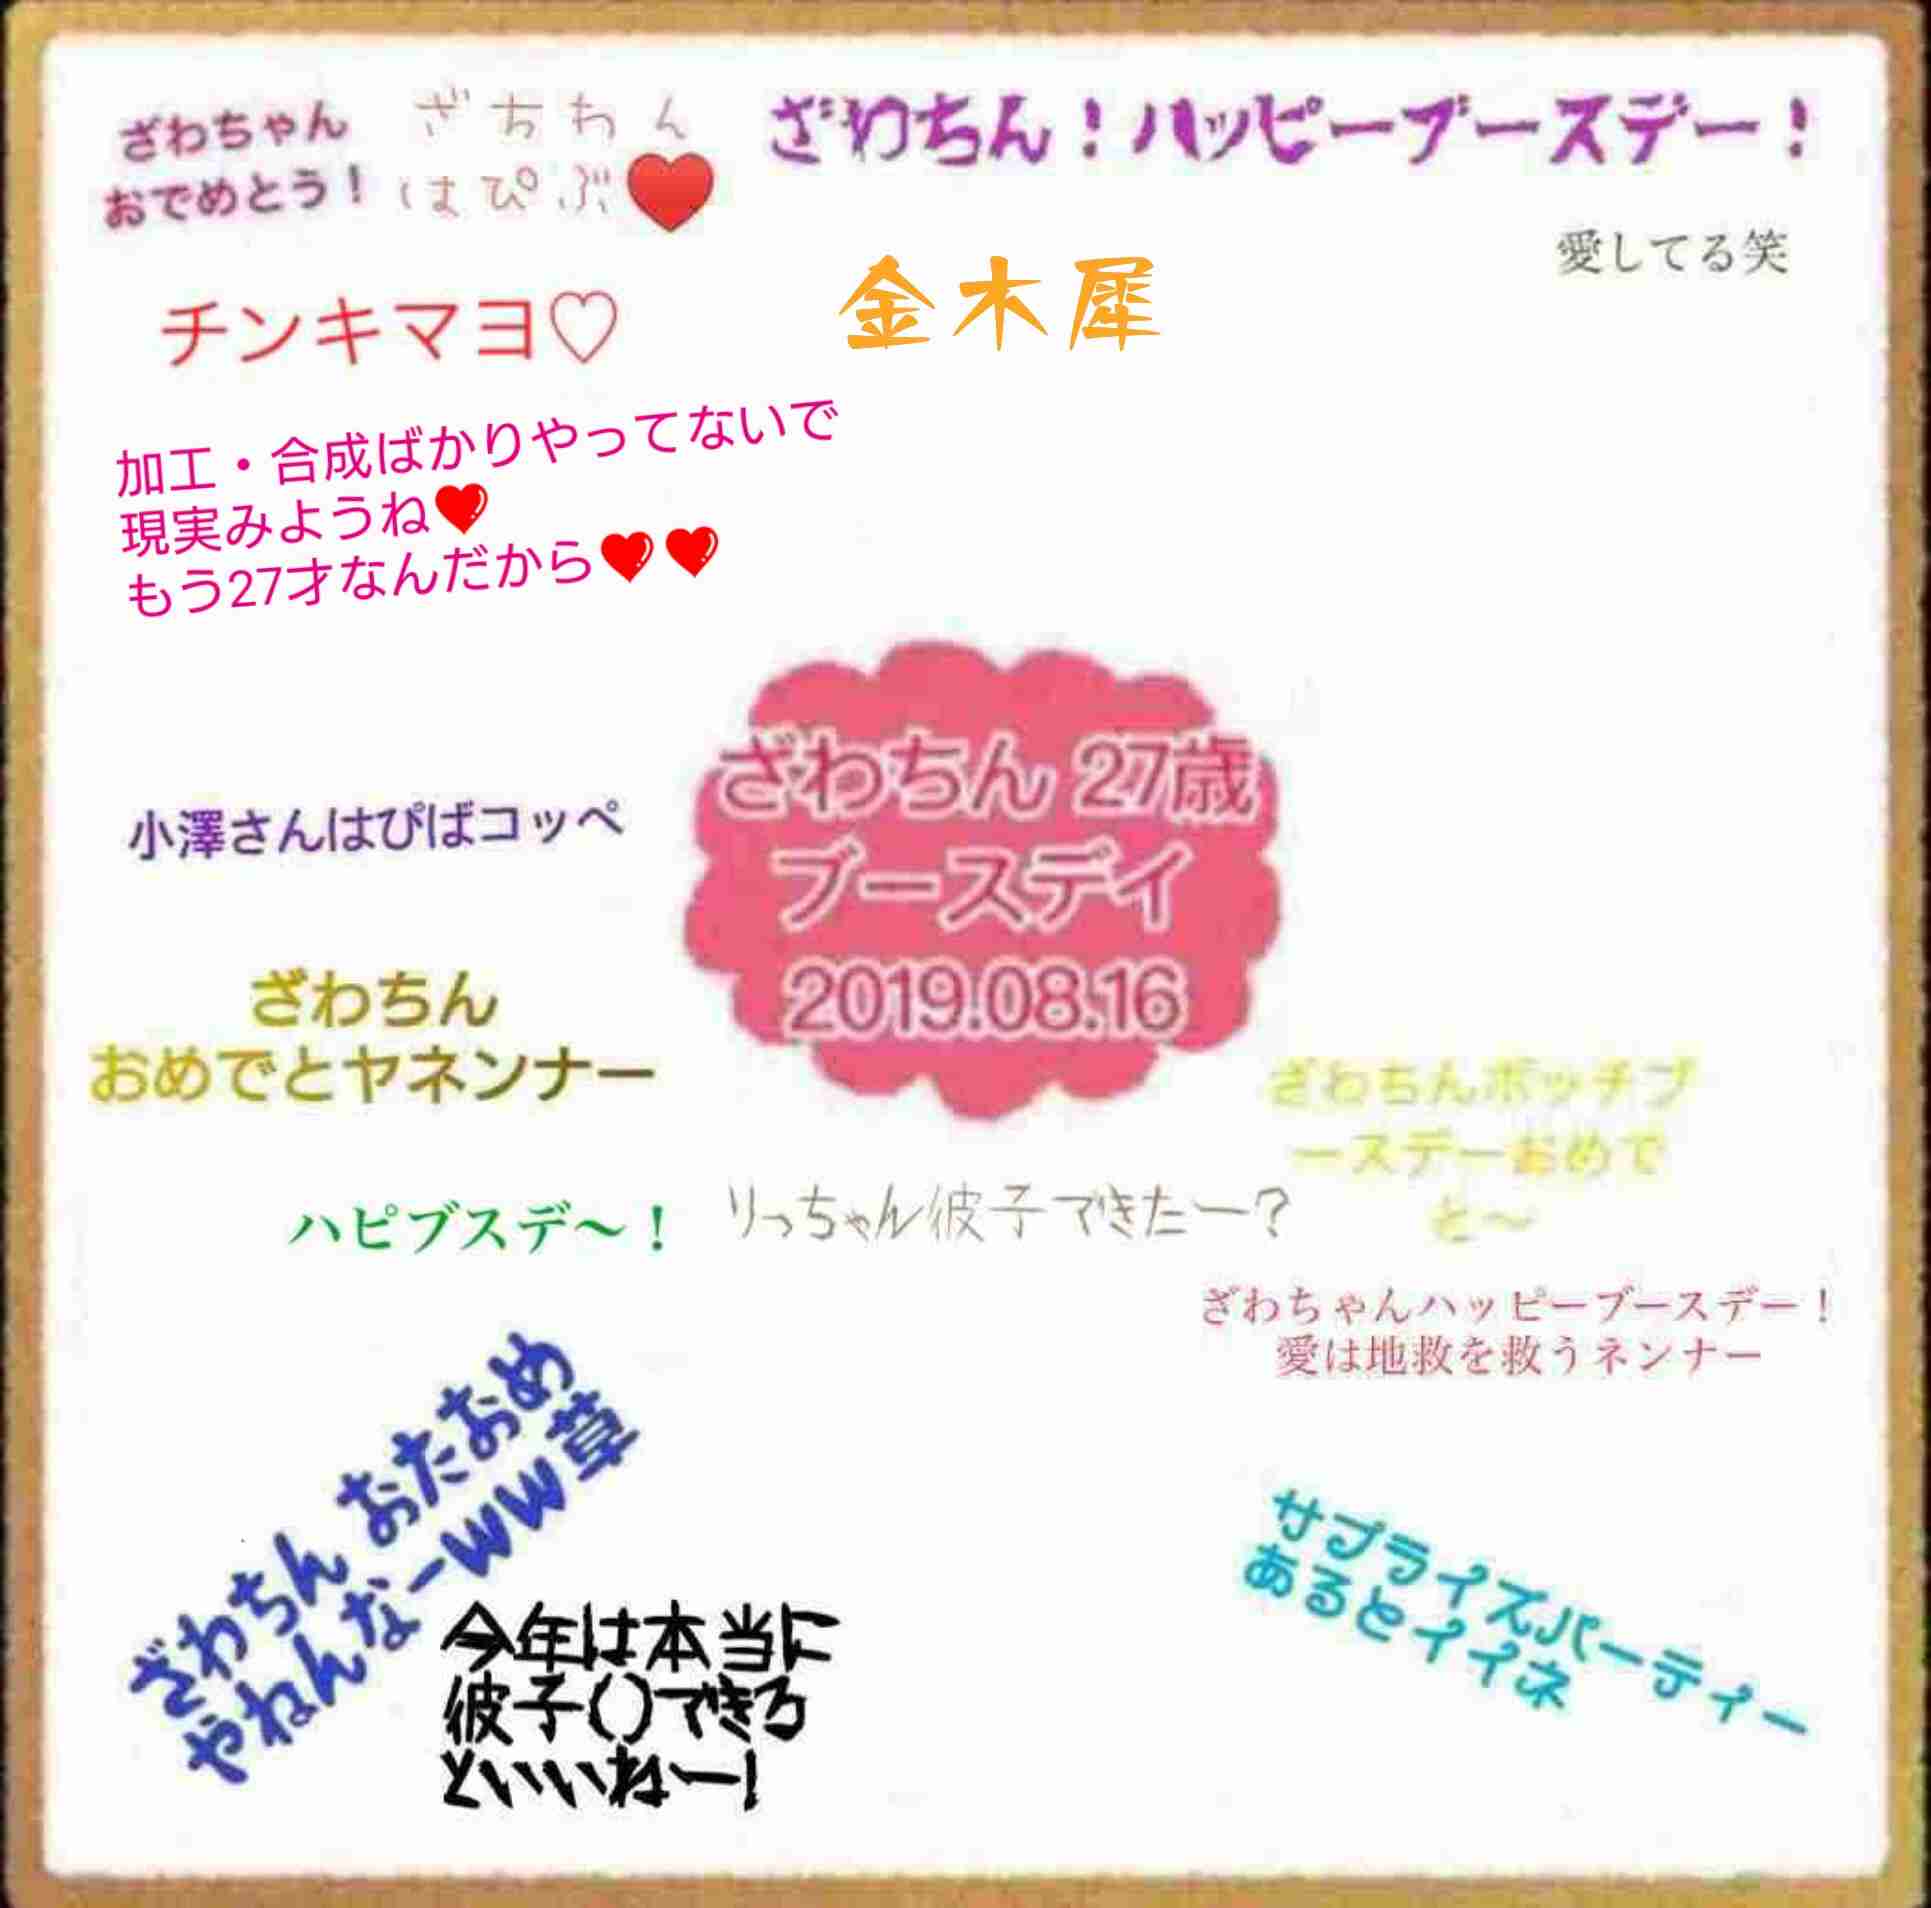 ざわちゃん
おでめとう！
ざちわん
はぴぶ♥
ざわちん！ハッピーブースデー！
愛してる笑
チンキマヨ♡
金木犀
加工・合成ばかりやってないで
現実みようね❤
もう27才なんだから❤❤
ざわちん 27歳
ブースデイ
2019.08.16
小澤さんはぴばコッペ
ざわちん
おめでとヤネンナー
ざわちんボッチブ
ースデーおめで
と〜
ハピブスデ〜！
りっちゃん彼子できたー？
ざわちゃんハッピーブースデー！
愛は地救を救うネンナー
ざわちん おたおめ
やねんなーww草
今年は本当に
彼子()できろ
といいねー！
サプライズパーティー
あるとイイネ